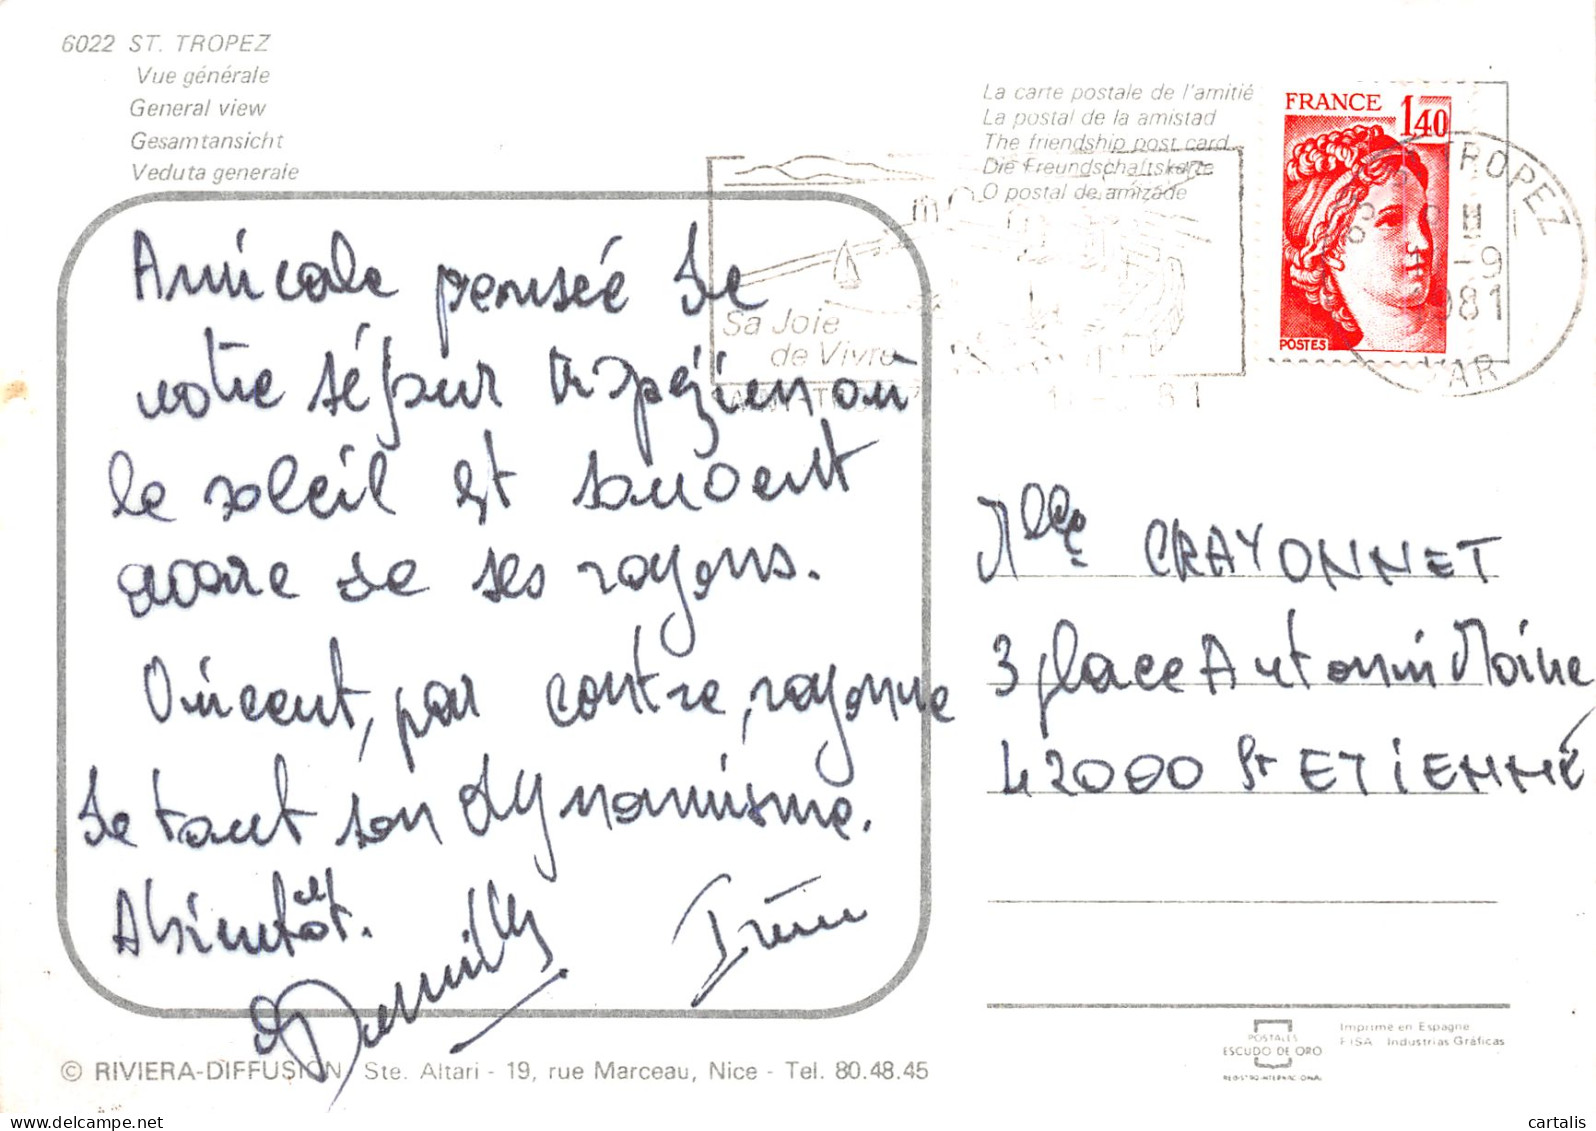 6022 ST. TROPEZ
Vue générale
General view
Gesamtansicht
Veduta generale
La carte postale de l'amitié
La postal de la amistad
The friendship post card
Die Freundschaftskarte
O postal de amizade
FRANCE 1,40
POSTES
TROPEZ
83
H
-9
1981
VAR
Sa Joie
de Vivre
Amicale pensée de
votre séjour tropézien où
le soleil est souvent
avare de ses rayons.
Vincent, par contre, rayonne
de tout son dynamisme.
A bientôt.
Irène
Mlle CRAYONNET
3 place Antonin Moine
42000 St ETIENNE
© RIVIERA-DIFFUSION Ste. Altari - 19, rue Marceau, Nice - Tel. 80.48.45
POSTALES
ESCUDO DE ORO
REGISTRO INTERNACIONAL
Imprimé en Espagne
FISA Industrias Gráficas
cartalis